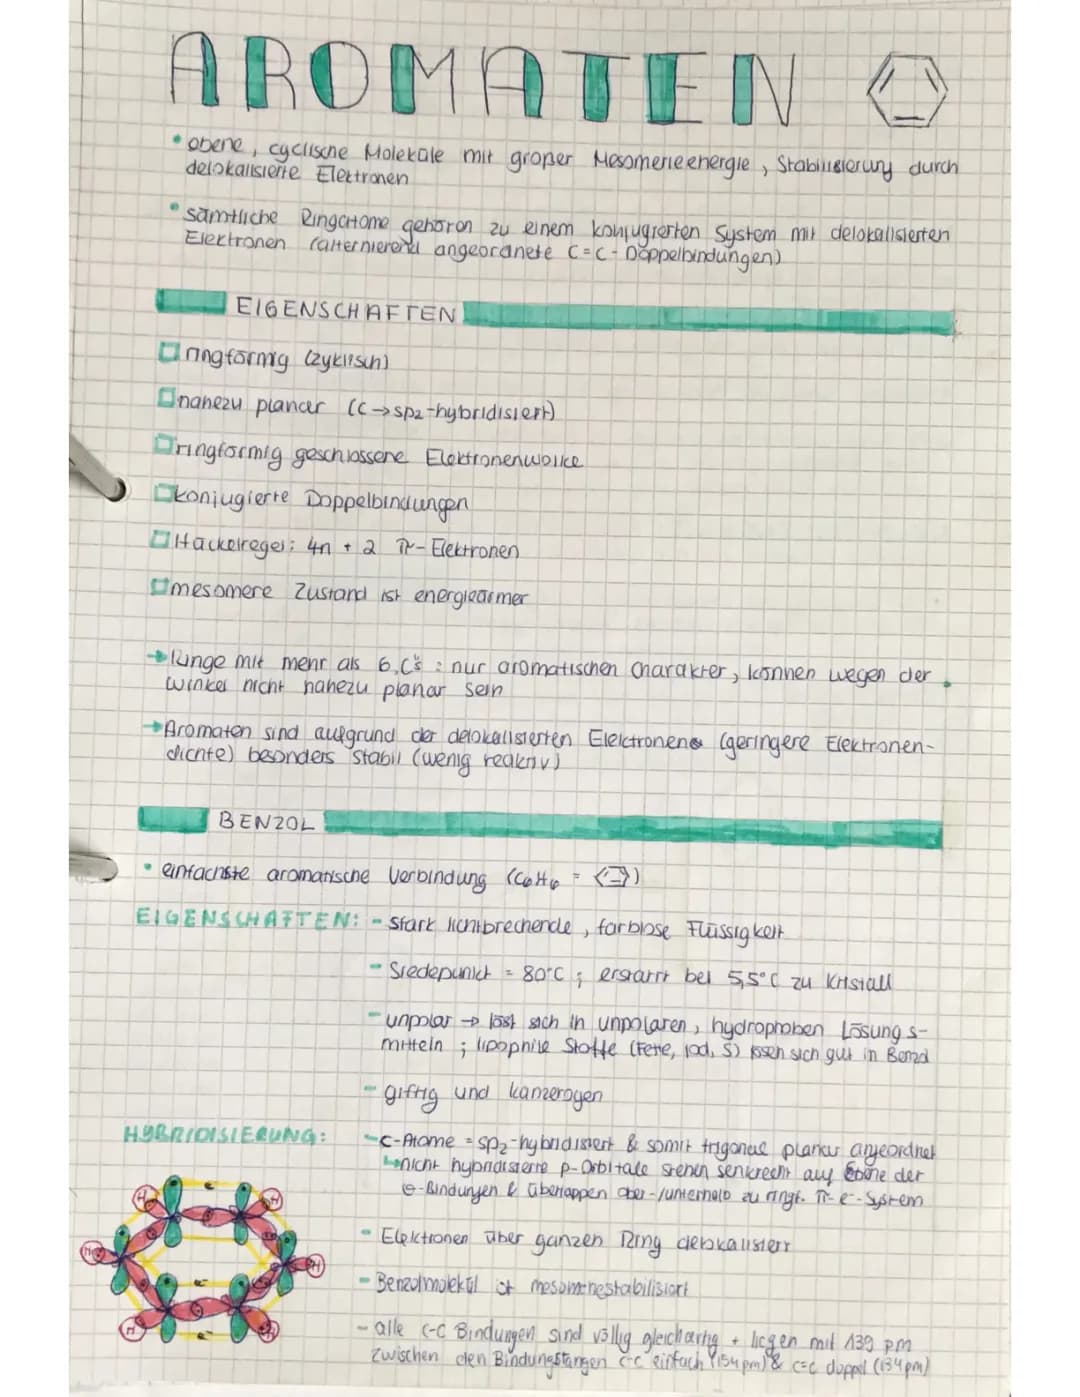 AROMATEN
• ebene, cyclische Moleküle mit großer Mesomerieenergie, Stabilisierung durch
delokalisierte Elektronen
• sämtliche Ringatome gehören zu einem konjugierten System mit delokalisierten
Elektronen (alternierend angeordnete C=C-Doppelbindungen)
EIGENSCHAFTEN
ringförmig (zyklisch)
nahezu planar (C→sp2-hybridisiert)
ringförmig geschlossene Elektronenwolke
konjugierte Doppelbindungen
Hückelregel: 4n + 2 π-Elektronen
mesomere Zustand ist energieärmer
→ Ringe mit mehr als 6 C's : nur aromatischen Charakter, können wegen der
Winkel nicht nahezu planar sein
→ Aromaten sind aufgrund der delokalisierten Elektronen (geringere Elektronen-
dichte) besonders stabil (wenig reaktiv)
BENZOL
• einfachste aromatische Verbindung (C6H6 = )
EIGENSCHAFTEN: - stark lichtbrechende, farblose Flüssigkeit
- Siedepunkt = 80°C ; erstarrt bei 5,5°C zu Kristall
- unpolar → löst sich in unpolaren, hydrophoben Lösungs-
mitteln ; lipophile Stoffe (Fette, Iod, S) lösen sich gut in Benzol
- giftig und kanzerogen
HYBRIDISIERUNG: - C-Atome = sp2-hybridisiert & somit trigonal planar angeordnet
↳ nicht hybridisierte p-Orbitale stehen senkrecht auf Ebene der
σ-Bindungen & überlappen ober-/unterhalb zu ringf. π-e⁻-System
- Elektronen über ganzen Ring delokalisiert
- Benzolmolekül ist mesomeriestabilisiert
- alle C-C Bindungen sind völlig gleichartig + liegen mit 139 pm
zwischen den Bindungslängen C-C einfach (154 pm) & C=C doppel (134 pm)
H
H
H
H
H
H